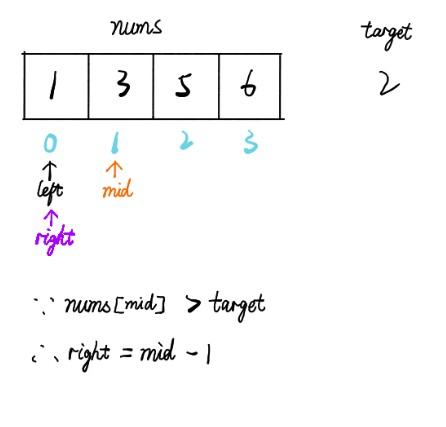 nums target
1 3 5 6 2
0 1 2 3
↑ ↑
left mid
↑
right
∵ nums[mid] > target
∴ right = mid - 1